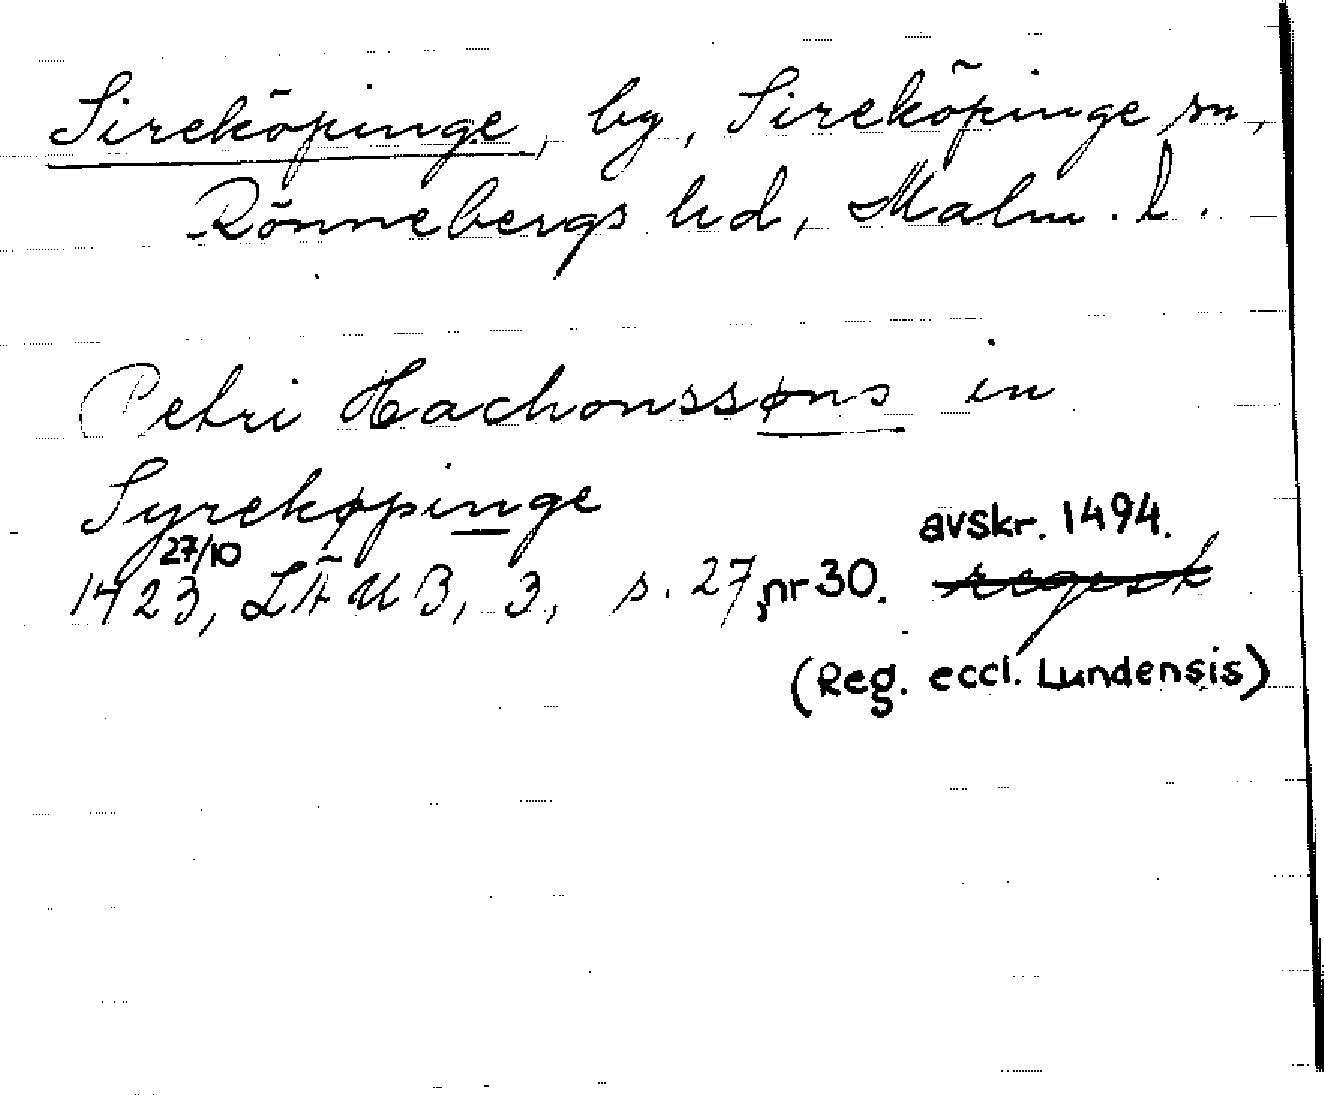 Sireköpinge, by, Sireköpinge sn,
Rönnebergs hd, Malm. l.
Petri Hachonssøns in
Syrekøpinge
27/10 avskr. 1494.
1423, LÄUB, 3, s. 27, nr 30. regest
(Reg. eccl. Lundensis)